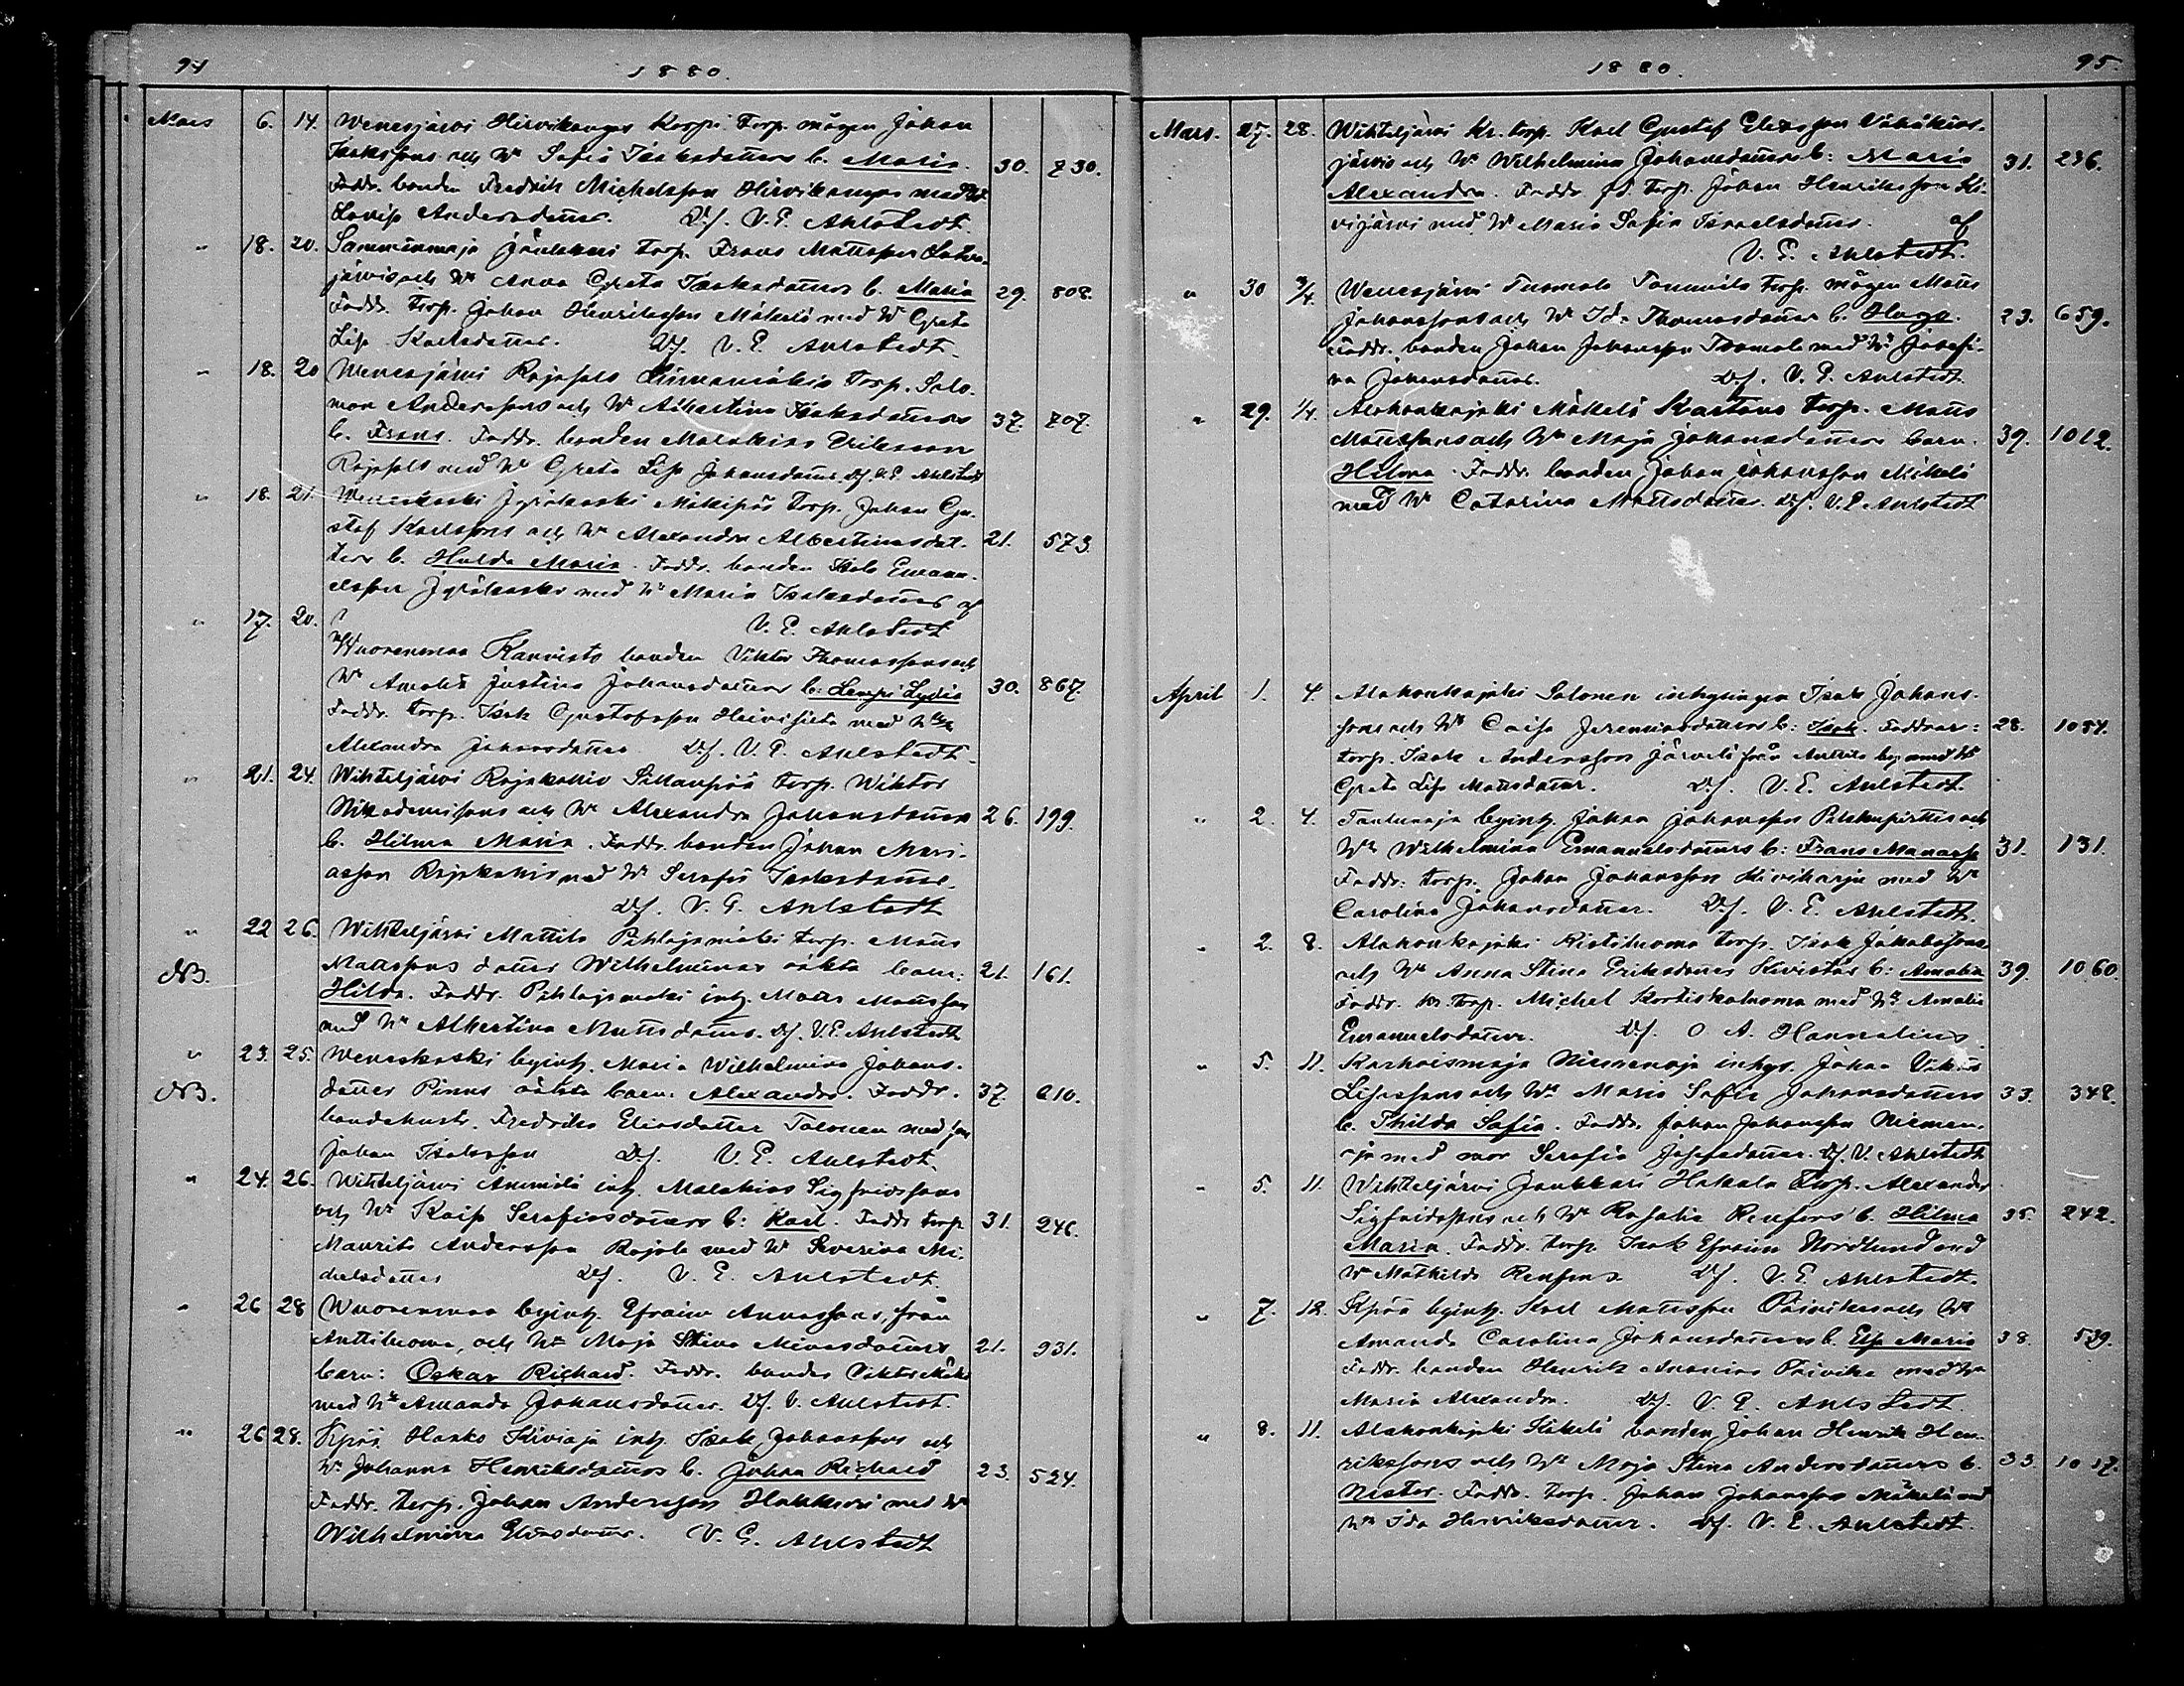 94
1880.
Mars 6. 14. Wenesjärvi Hirvikangas Korpi Torp. mågen Johan
Isakssons och Wn Sofia Isaksdotters b. Maria. 30. 730.
Fadd. bonden Fredrik Michelsson Hirvikangas med
Lovisa Andersdotter. Df. V. E. Ahlstedt.
" 18. 20. Samminmaja Torp. Frans Mattsson
och Wn Anna Greta Isaksdotters b. Maria 29. 808.
Fadd. Torp. Johan Henriksson Mäkelä med Wn Greta
Lisa Karlsdotter. Df. V. E. Ahlstedt.
" 18. 20 Wenesjärvi Rajasalo Torp. Salo-
mon Anderssons och Wn Albertina Isaksdotters 37. 707.
b. Frans. Fadd. bonden Malakias Eriksson
Rajasalo med Wn Greta Lisa Johansdotter Df. V. E. Ahlstedt
" 18. 21. Weneskoski Jyräkoski Mäkipää Torp. Johan Gu-
staf Karlssons och Wn Alexandra Albertinasdot- 21. 573.
ters b. Hulda Maria. Fadd. bonden Isak Emanu-
elsson Jyräkoski med Wn Maria Isaksdotter af
" 17. 20. V. E. Ahlstedt
Wuorenmaa Kanvisto bonden Viktor Thomassons och
Wn Amalia Justina Johansdotters b: Lempi Lydia 30. 867.
Fadd. Torp. Isak Gustafsson med
Alexandra Johansdotter Df. V. E. Ahlstedt.
" 21. 24. Wihteljärvi Rajakallio Sillanpää Torp. Wiktor
Nikodemissons och Wn Alexandra Johansdotters 26. 199.
b. Hilma Maria. Fadd. bonden Johan Mari-
asson Rajakallio med Wn Serafia Isaksdotter.
Df. V. E. Ahlstedt
" 22 26. Wihteljärvi Mattila Pihlajamäki Torp. Matts
NB. Mattssons dotter Wilhelminas oäkta barn: 21. 161.
Hilda. Fadd. Pihlajamäki inh. Matts Mattsson
med Wn Albertina Mattsdotter. Df. V. E. Ahlstedt
" 23. 25. Weneskoski byinh. Maria Wilhelmina Johans-
NB. dotter Pinns oäkta barn: Alexander. Fadd. 37. 610.
bondehust. Fredrika Eliasdotter Talonen med
Johan Isaksson Df. V. E. Ahlstedt.
" 24. 26. Wihteljärvi Ammälä inh. Malakias Sigfridssons
och Wn Kaisa Serafiasdotters b: Karl. Fadd. torp. 31. 246.
Maurits Andersson Rajala med Wn Severina Mi-
chelsdotter Df. V. E. Ahlstedt.
" 26 28 Wuorenmaa byinh. Efraim Annassons, från
Anttiluoma, och Wn Maja Stina Minasdotters 21. 931.
barn: Oskar Richard. Fadd. bonden Viktor
med Wn Amanda Johansdotter. Df. V. Ahlstedt.
" 26 28. Kpää Hanko Kiviaja inh. Isak Johanssons och
Wn Johanna Henriksdotters b. Johan Richard 23. 524.
Fadd. torp. Johan Andersson Hakkuri med Wn
Wilhelmina Eliasdotter. V. E. Ahlstedt
1880.
95.
Mars. 27. 28. Wihteljärvi Kr. torp. Karl Gustaf Eliasson
järvis och Wn Wilhelmina Johansdotters b: Maria 31. 236.
Alexandra. Fadd. torp. Johan Henriksson Ki-
vijärvi med Wn Maria Sofia Israelsdotter. af
V. E. Ahlstedt.
" 30 3/4. Wenesjärvi Tuomola Tommila torp. mågen Matts
Johanssons och Wn Ida Thomasdotter b. Hugo. 23. 659.
Fadd. bonden Johan Johansson Tuomola med Wn Josefi-
na Johansdotter. Df. V. E. Ahlstedt.
" 29. 1/4. Alahonkajoki Mäkelä Kartano torp. Matts
Mattssons och Wn Maja Johansdotters barn. 39. 1012.
Hilma. Fadd. bonden Johan Johansson Mäkelä
med Wn Catarina Mattsdotter. Df. V. E. Ahlstedt
April 1. 4. Alahonkajoki Salonen inhysingen Isak Johans-
sons och Wn Caisa Jeremiasdotters b: Isak. Faddrar: 28. 1087.
torp. Isak Andersson Järvelä från Anttila by med Wn
Greta Lisa Mattsdotter. Df. V. E. Ahlstedt.
" 2. 4. byinh. Johan Johansson och
Wn Wilhelmina Emanuelsdotters b: Frans Manasse 31. 131.
Fadd: torp. Johan Johansson Kiviharju med Wn
Carolina Johansdotter. Df. V. E. Ahlstedt.
" 2. 8. Alahonkajoki Ristiluoma torp. Isak Jakobssons
och Wn Anna Stina Eriksdotter Kivistös b: Amalia 39. 1060.
Fadd. kr. torp. Michel Kortiskaluoma med Wn Amalia
Emanuelsdotter. Df. O A. Hannelius
" 5. 11. Karhoismaja Niemenoja inhys. Johan
Lisassons och Wn Maria Sofia Johansdotters 33. 348.
b. Thilda Sofia. Fadd. Johan Johansson Niemen-
oja med mor Serafia Josefsdotter. Df. V. Ahlstedt
" 5. 11. Wihteljärvi Jankkari Hakala Torp. Alexander
Sigfridssons och Wn Rosalia Renfors b. Hilma 35. 242.
Maria. Fadd. torp. Isak Efraim Nordlund med
Wn Mathilda Renfors Df. V. E. Ahlstedt.
" 7. 12. Kpää byinh. Karl Mattsson Päivikes och Wn
Amanda Carolina Johansdotters b. Elsa Maria 38. 539.
Fadd. bonden Henrik Ananias Päivike med Wn
Maria Alexandra. Df. V. E. Ahlstedt.
" 8. 11. Alahonkajoki Käkelä bonden Johan Henrik Hen-
rikssons och Wn Maja Stina Andersdotters b. 33. 1017.
Nestor. Fadd. torp. Johan Johansson Mäkelä med
Wn Ida Henriksdotter. Df. V. E. Ahlstedt.